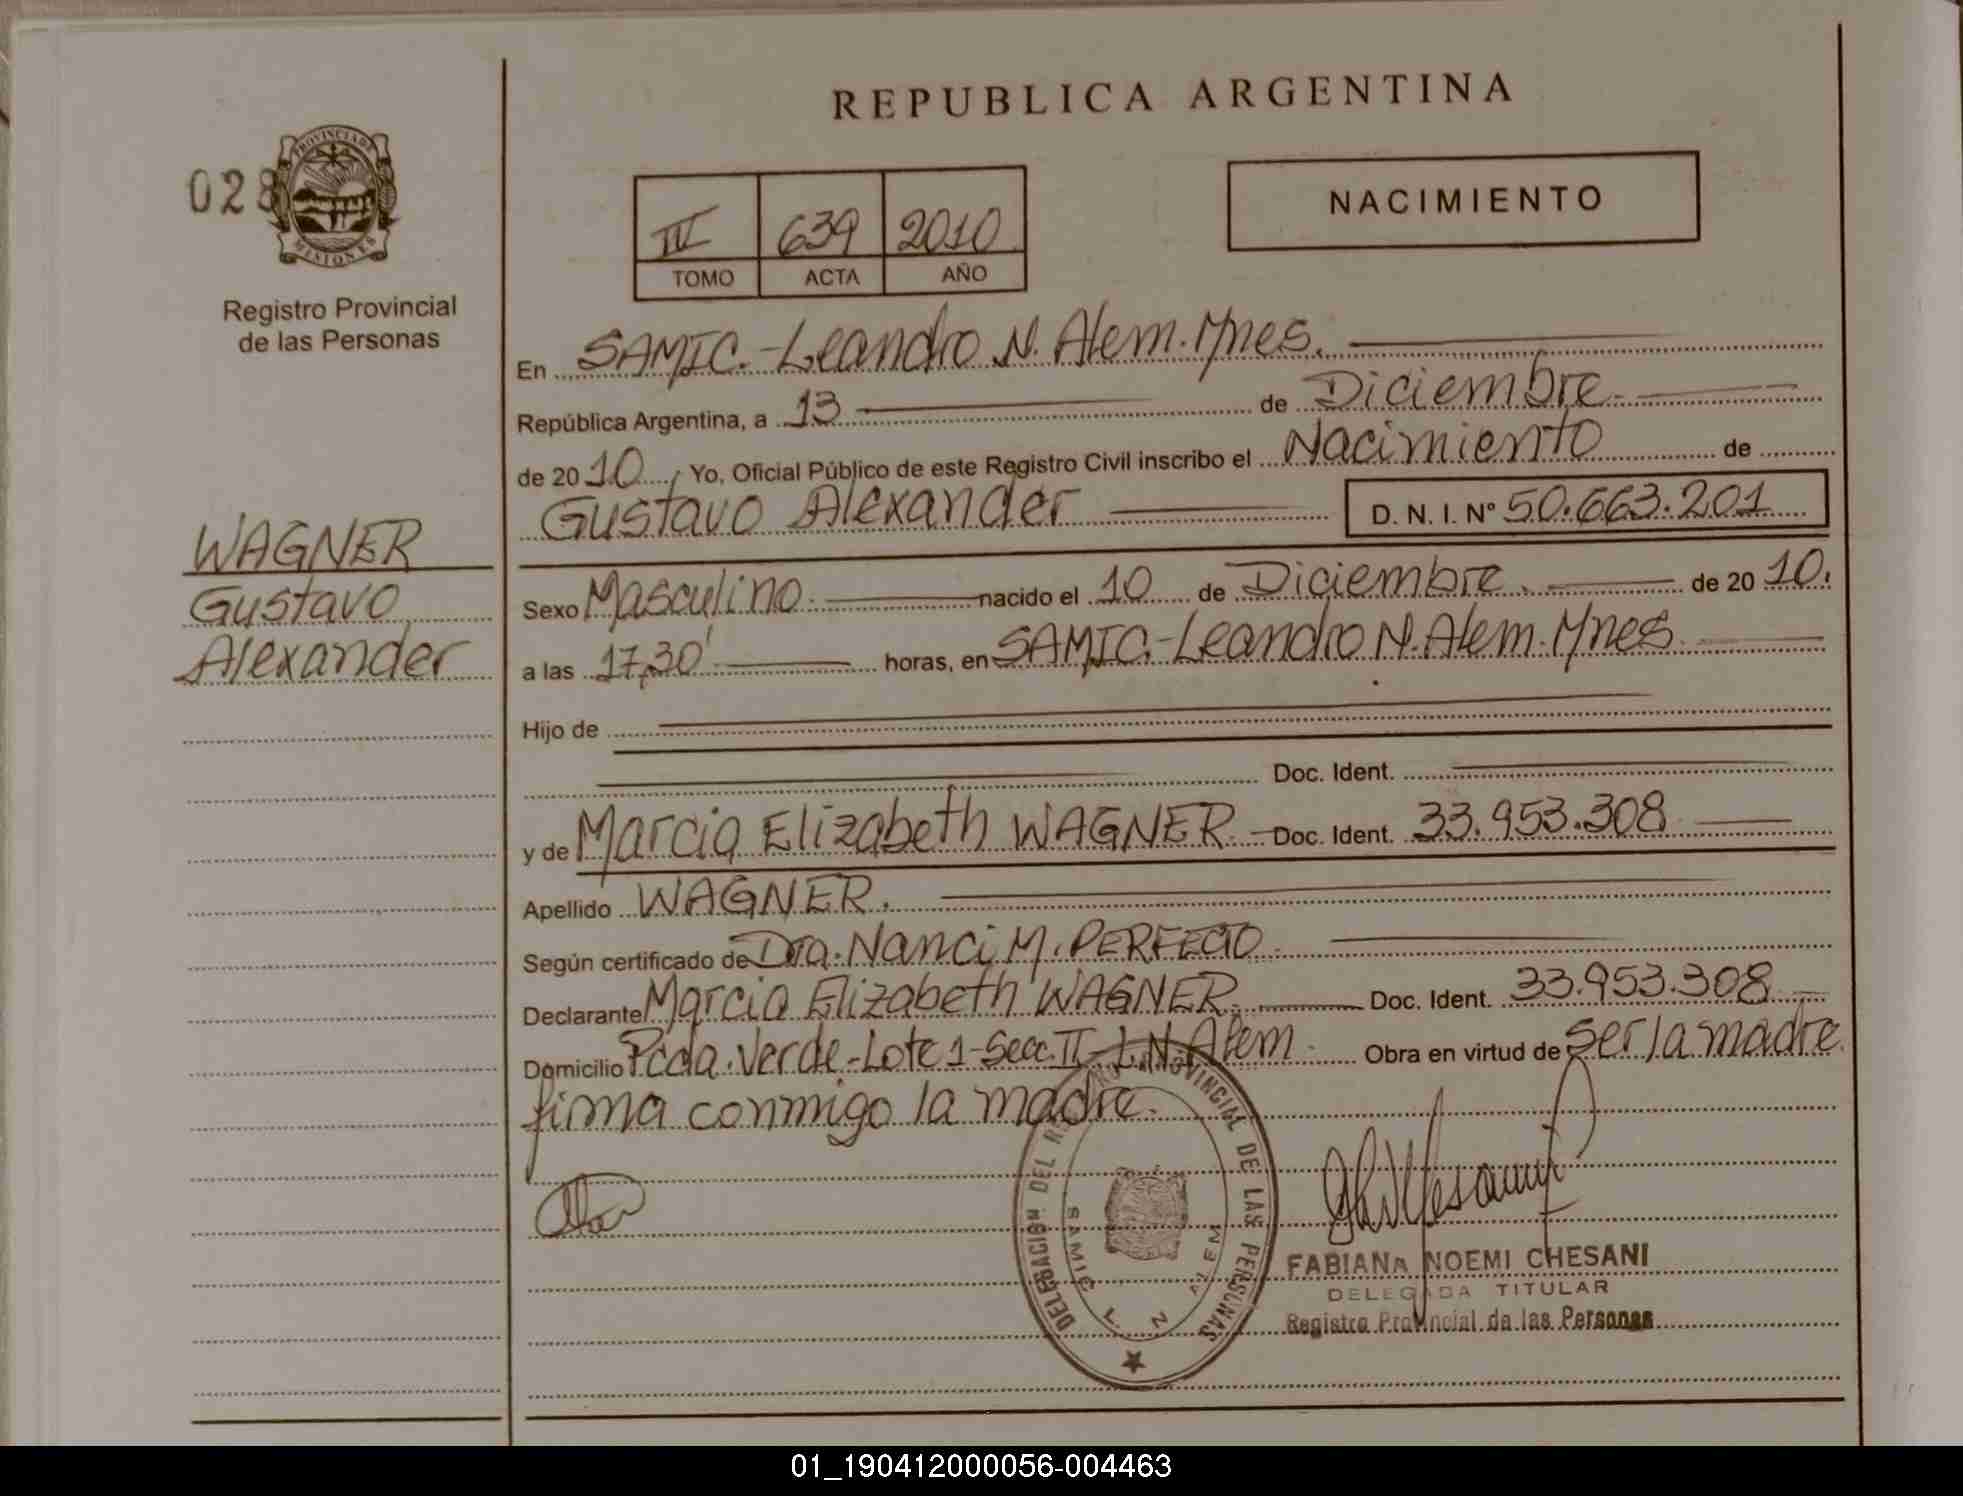 REPUBLICA ARGENTINA
028
PROVINCIA DE
MISIONES
Registro Provincial
de las Personas
IV 639 2010
TOMO ACTA AÑO
NACIMIENTO
En SAMIC.-Leandro N. Alem. Mnes.
República Argentina, a 13 de Diciembre
de 2010, Yo, Oficial Público de este Registro Civil inscribo el Nacimiento de
Gustavo Alexander D. N. I. N° 50.663.201
WAGNER
Gustavo
Alexander
Sexo Masculino nacido el 10 de Diciembre. de 2010.
a las 17,30' horas, en SAMIC.-Leandro N. Alem. Mnes
Hijo de
Doc. Ident.
y de Marcia Elizabeth WAGNER. Doc. Ident. 33.953.308
Apellido WAGNER.
Según certificado de Dra. Nanci M. PERFECTO
Declarante Marcia Elizabeth WAGNER. Doc. Ident. 33.953.308
Domicilio Pcda. Verde-Lote 1-Secc. II-L.N. Alem. Obra en virtud de ser la madre.
firma conmigo la madre.
DELEGACION DEL REGISTRO PROVINCIAL DE LAS PERSONAS
SAMIC L. N. ALEM
FABIANA NOEMI CHESANI
DELEGADA TITULAR
Registro Provincial de las Personas
01_190412000056-004463